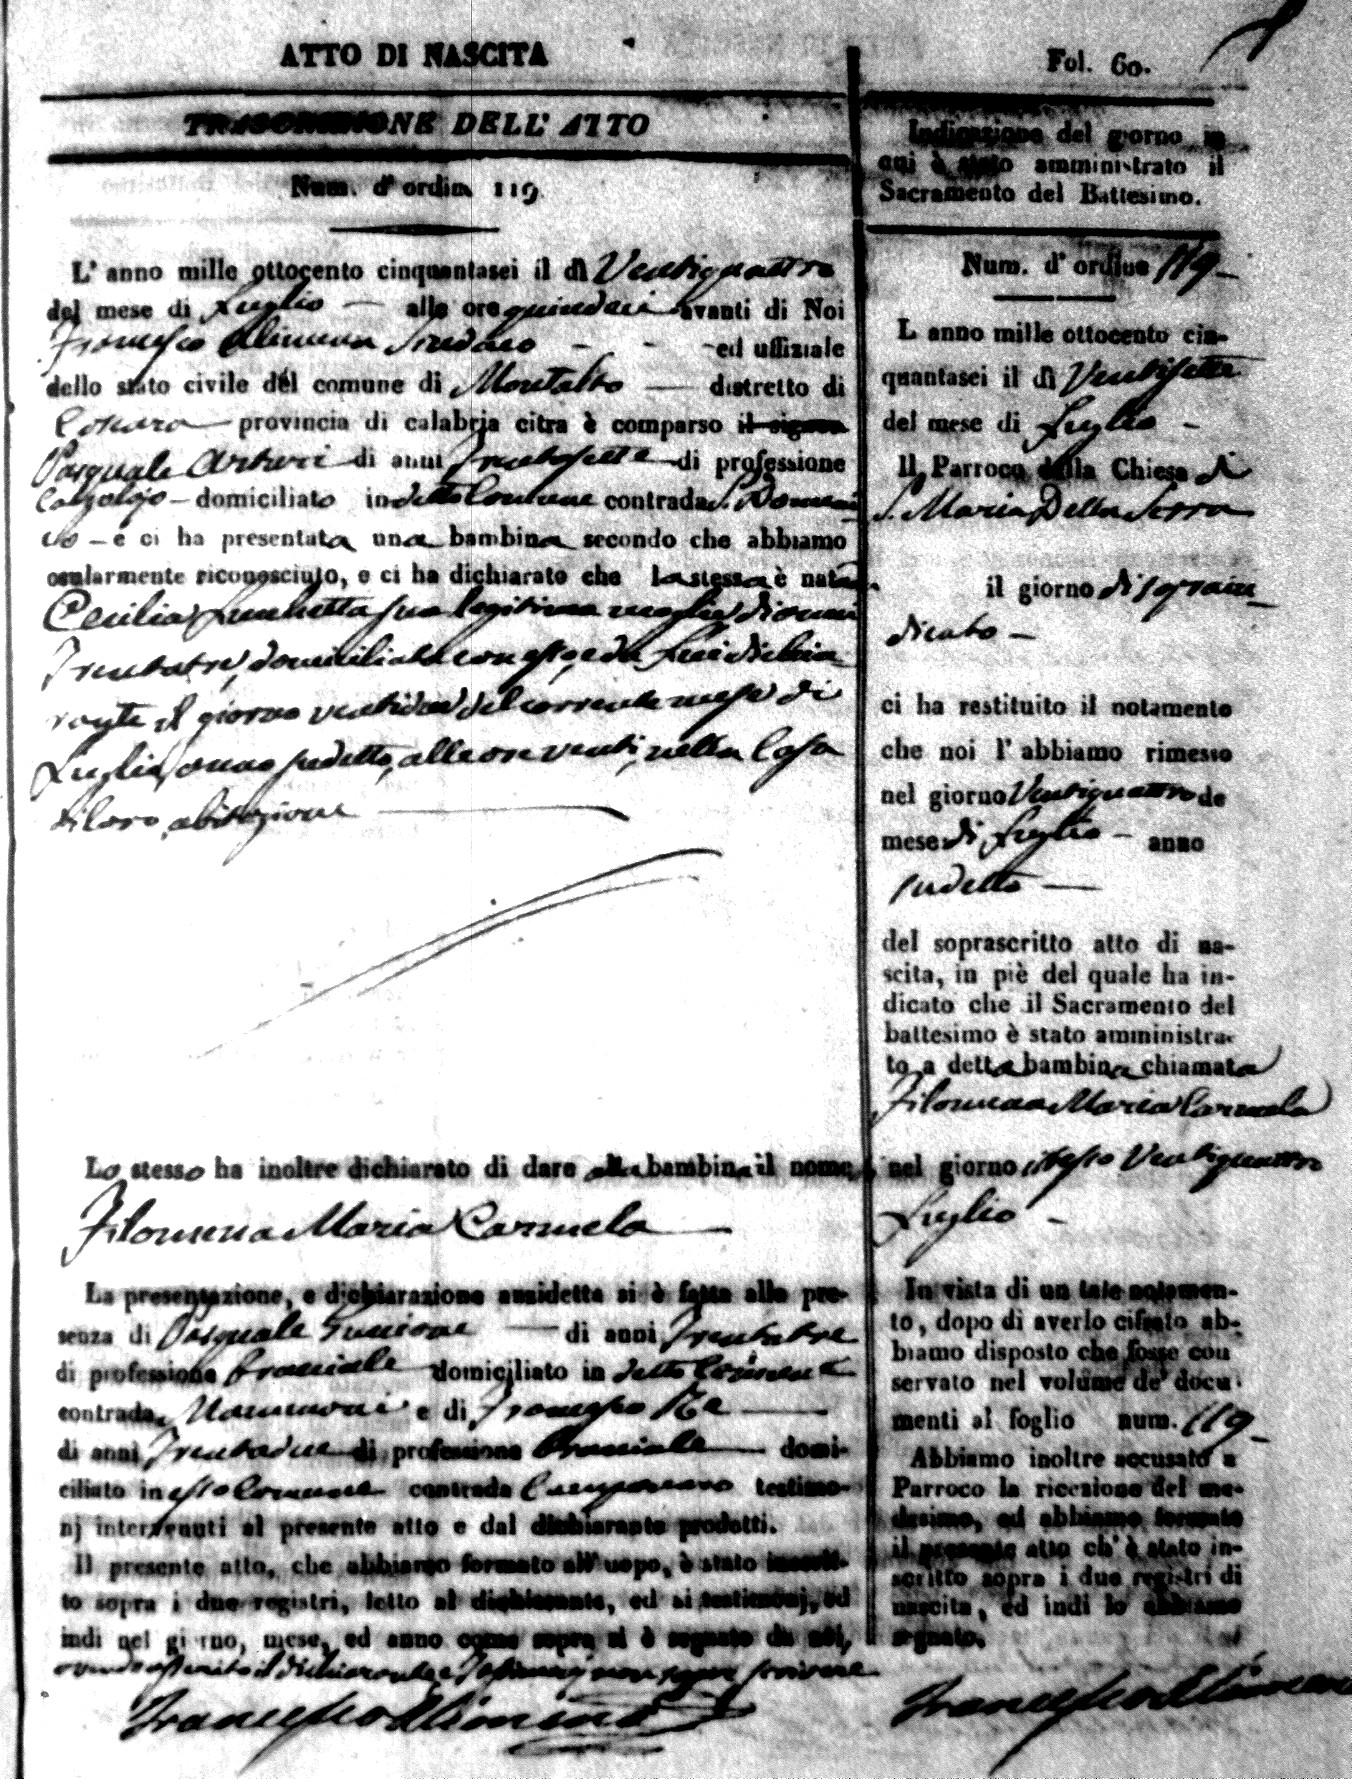 ATTO DI NASCITA
TRASCRIZIONE DELL' ATTO
Num. d' ordin 119
L' anno mille ottocento cinquantasei il dì Ventiquattro
del mese di Luglio — alle ore quindeci avanti di Noi
Francesco Alimena Sindaco - - - ed uffiziale
dello stato civile del comune di Montalto — distretto di
Cosenza — provincia di calabria citra è comparso il signor
Pasquale Arturi di anni Trentasette di professione
Calzolajo — domiciliato in detto Comune contrada S. Domeni
co — e ci ha presentata una bambina secondo che abbiamo
ocularmente riconosciuto, e ci ha dichiarato che la stessa è nata da
Cecilia sua legitima moglie di anni
Trentatre, domiciliata con esso, e da Lui dichia
rante il giorno ventidue del corrente mese di
Luglio, anno sudetto, alle ore venti, nella Casa
di loro abitazione
Lo stesso ha inoltre dichiarato di dare alla bambina il nome
Filomena Maria Carmela
La presentazione, e dichiarazione anzidetta si è fatta alla pre-
senza di Pasquale — di anni Trentatre
di professione bracciale domiciliato in detto Comune
contrada e di Francesco Re
di anni Trentadue di professione Bracciale domi-
ciliato in esso Comune contrada testimo-
nj intervenuti al presente atto e dal dichiarante prodotti.
Il presente atto, che abbiamo formato all' uopo, è stato inscrit-
to sopra i due registri, letto al dichiarante, ed ai testimonj, ed
indi nel giorno, mese, ed anno come sopra si è segnato da noi,
avendo asserito il dichiarante e Testimonj non saper scrivere
Francesco Alimena
Fol. 60.
Indicazione del giorno in
cui è stato amministrato il
Sacramento del Battesimo.
Num. d' ordine 119 —
L anno mille ottocento cin-
quantasei il dì Ventisette
del mese di Luglio -
Il Parroco della Chiesa di
S. Maria Della Serra
il giorno di soprain
dicato —
ci ha restituito il notamento
che noi l' abbiamo rimesso
nel giorno Ventiquattro de
mese di Luglio — anno
sudetto —
del soprascritto atto di na-
scita, in piè del quale ha in-
dicato che il Sacramento del
battesimo è stato amministra-
to a detta bambina chiamata
Filomena Maria Carmela
nel giorno istesso Ventiquattro
Luglio -
In vista di un tale notamen-
to, dopo di averlo cifrato ab-
biamo disposto che fosse con
servato nel volume de' docu-
menti al foglio num. 119 —
Abbiamo inoltre accusato a
Parroco la ricezione del me-
desimo, ed abbiamo formato
il presente atto ch' è stato in-
scritto sopra i due registri di
nascita, ed indi lo abbiamo
segnato.
Francesco Alimena